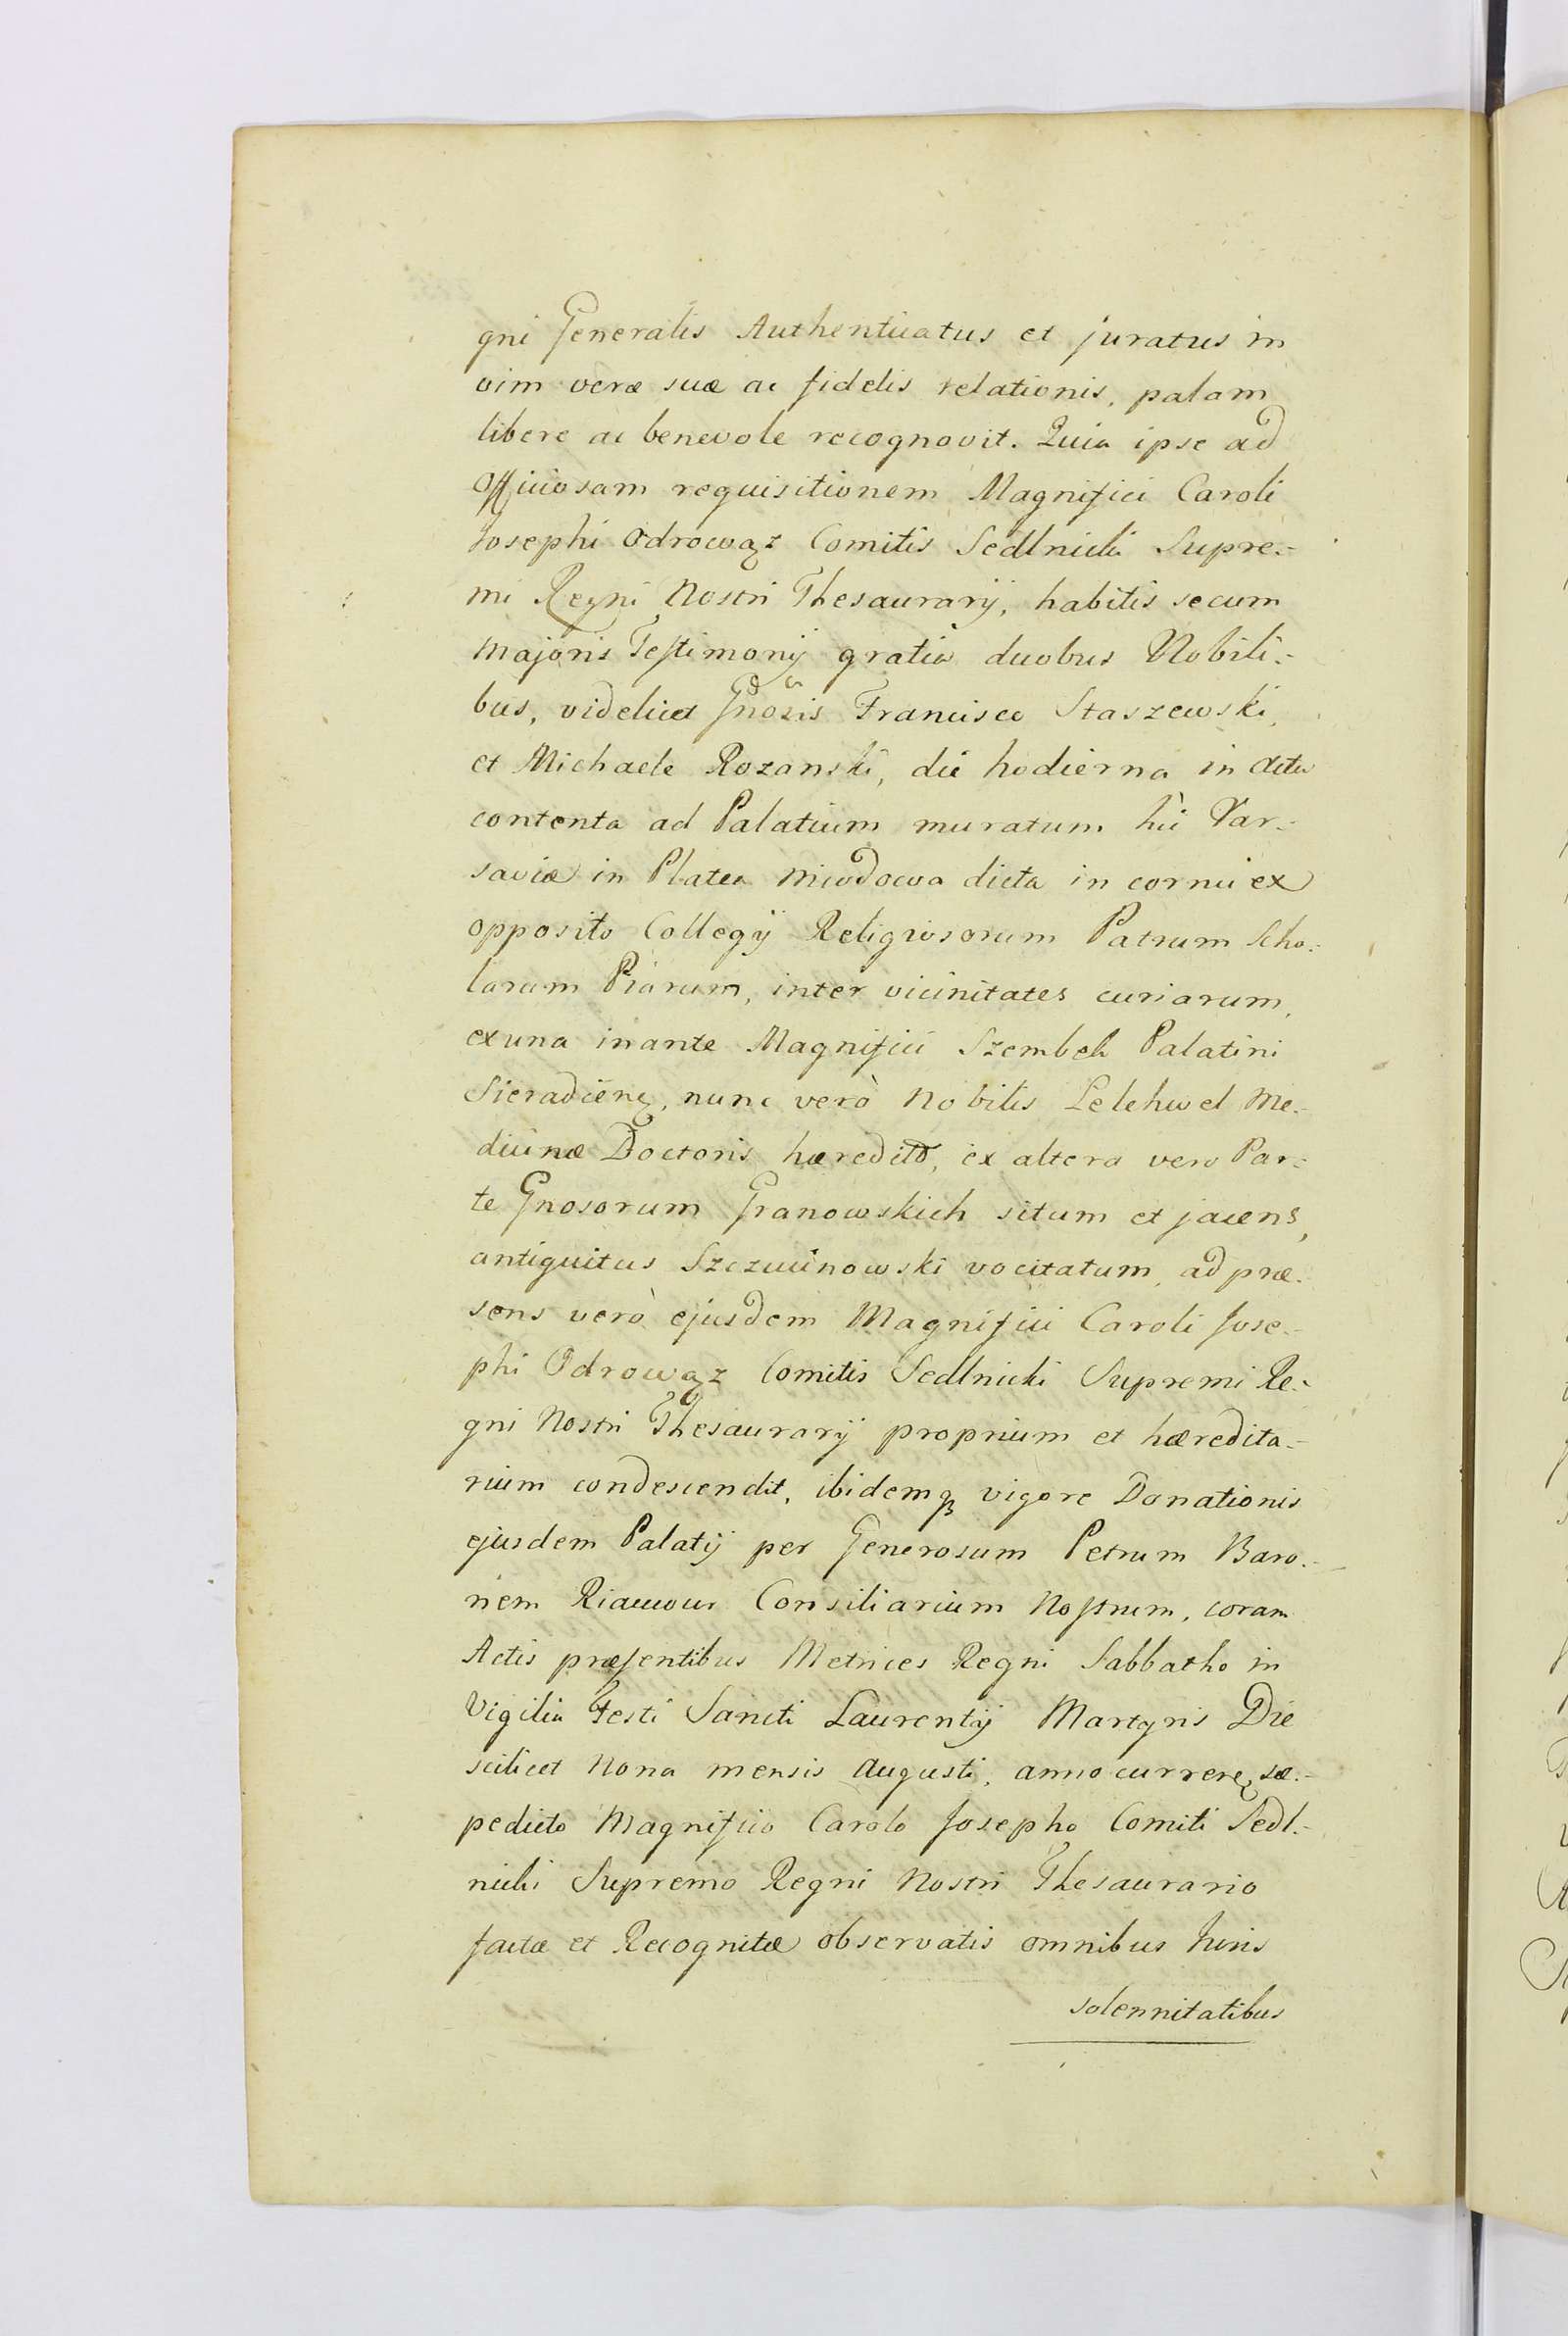 gni Generalis Authenticatus et juratus in
vim veræ suæ ac fidelis relationis, palam
libere ac benevole recognovit. Quia ipse ad
Officiosam requisitionem Magnifici Caroli
Josephi Odrowąz Comitis Sedlnicki Supre.-
mi Regni Nostri Thesaurarij, habitis secum
majoris Testimonij gratia duobus Nobili.-
bus, videlicet Gnosis Francisco Staszewski,
et Michaele Rozanski, die hodierna in actu
contenta ad Palatium muratum hic Var.-
saviæ in Platea Miodowa dicta in cornu ex
opposito Collegij Religiosorum Patrum Scho.-
larum Piarum, inter vicinitates curiarum,
ex una in ante Magnifici Szembek Palatini
Sieradien, nunc verò Nobilis Lelehwel Me.-
dicinæ Doctoris hæredit, ex altera vero Par.-
te Gnosorum Granowskich situm et jacens,
antiquitus Szczucinowski vocitatum, ad præ.-
sens verò ejusdem Magnifici Caroli Jose.-
phi Odrowąz Comitis Sedlnicki Supremi Re.-
gni Nostri Thesaurarij proprium et hæredita.-
rium condescendit, ibidemq vigore Donationis
ejusdem Palatij per Generosum Petrum Baro.-
nem Riaucour Consiliarium Nostrum, coram
Actis præsentibus Metrices Regni Sabbatho in
Vigilia Festi Sancti Laurentij Martyris Die
scilicet Nona mensis Augusti, anno curren, sæ.-
pedicto Magnifico Carolo Josepho Comiti Sedl.-
nicki Supremo Regni Nostri Thesaurario
factæ et Recognitæ observatis omnibus Juris
solennitatibus